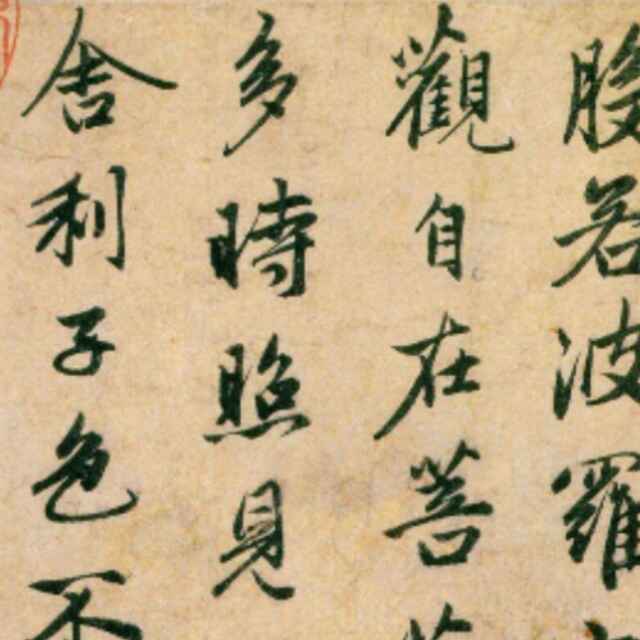 般若波羅
觀自在菩
多時照見
舍利子色不